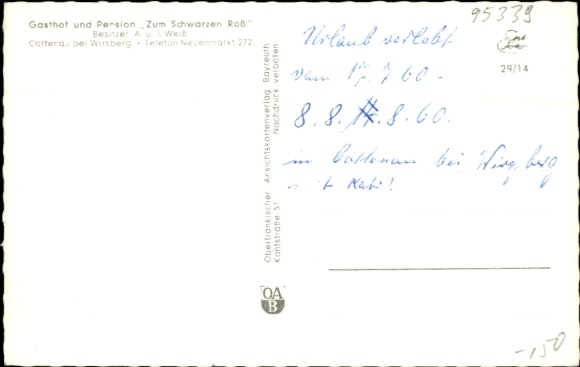 Gasthof und Pension „Zum Schwarzen Roß"
Besitzer A. u. J. Weiß
Cottenau bei Wirsberg • Telefon Neuenmarkt 272
Oberfränkischer Ansichtskartenverlag Bayreuth
Kantstraße 51 Nachdruck verboten
OA
B
95339
29/14
Urlaub verlebt
vom 17.7.60 -
8.8.60.
in Cottenau bei Wirsberg
mit Kati!
-150